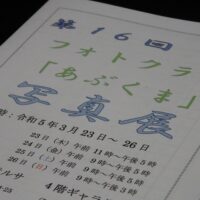 第16回
フォトクラ
「あぶくま」
写真展
時：令和5年3月23日～26日
23日（木）午前11時～午後5時
24日（金）午前9時～午後5時
25日（土）午前9時～午後5時
26日（日）午前9時～午後3時
ルサ 4階ギャラ